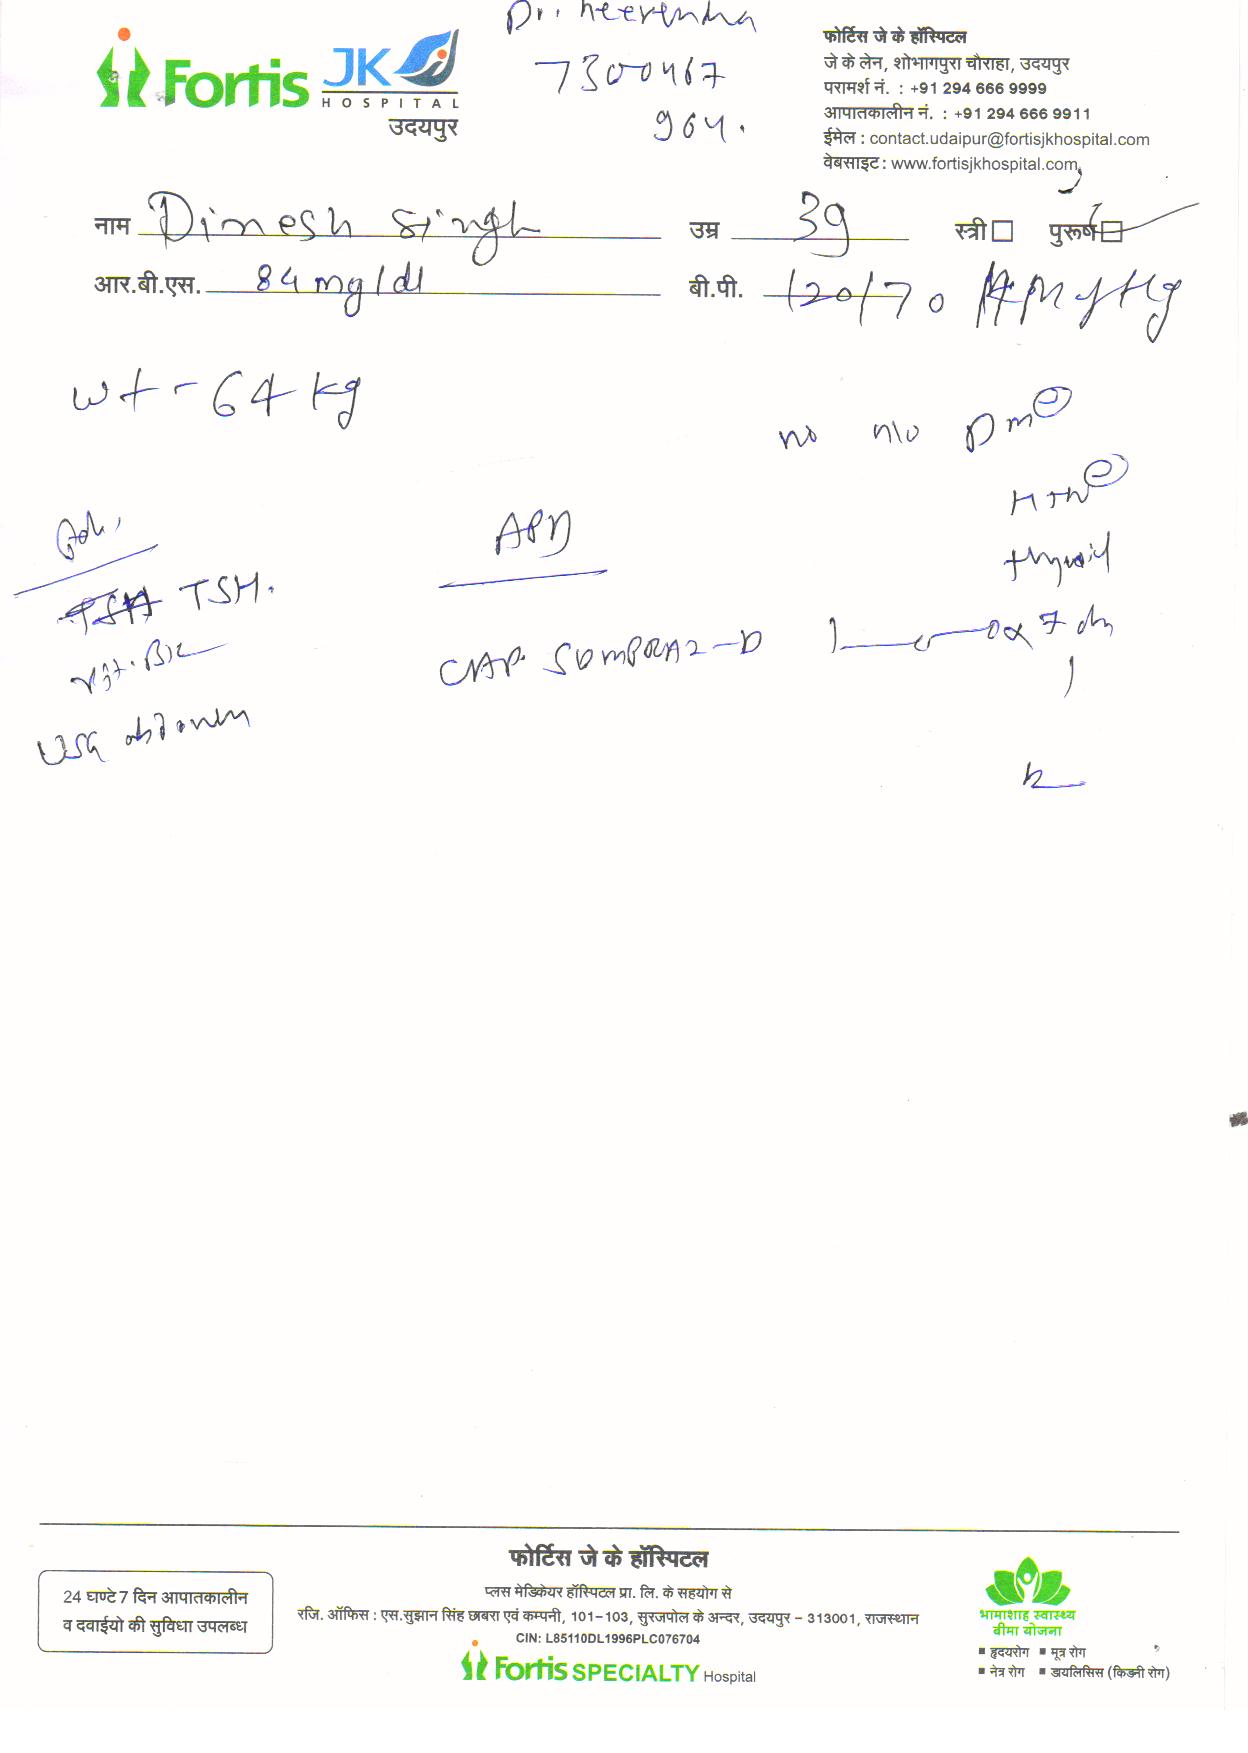 Dr. Neerendra
7300467
964.
Fortis JK
HOSPITAL
उदयपुर
फोर्टिस जे के हॉस्पिटल
जे के लेन, शोभागपुरा चौराहा, उदयपुर
परामर्श नं. : +91 294 666 9999
आपातकालीन नं. : +91 294 666 9911
ईमेल : contact.udaipur@fortisjkhospital.com
वेबसाइट : www.fortisjkhospital.com
नाम Dinesh Singh उम्र 39 स्त्री पुरूष
आर.बी.एस. 84 mg/dl बी.पी. 120/70 mmHg
wt - 64 kg
no h/o Dm
HTN
thyroid
Adv.
APD
TSH.
Vit. B12
CAP. SOMPRAZ-D 1 0 0 x 7 day
USG abdomen
24 घण्टे 7 दिन आपातकालीन
व दवाईयो की सुविधा उपलब्ध
फोर्टिस जे के हॉस्पिटल
प्लस मेडिकेयर हॉस्पिटल प्रा. लि. के सहयोग से
रजि. ऑफिस : एस.सुझान सिंह छाबरा एवं कम्पनी, 101-103, सुरजपोल के अन्दर, उदयपुर - 313001, राजस्थान
CIN: L85110DL1996PLC076704
Fortis SPECIALTY Hospital
भामाशाह स्वास्थ्य
बीमा योजना
▪ हृदयरोग ▪ मूत्र रोग
▪ नेत्र रोग ▪ डायलिसिस (किडनी रोग)